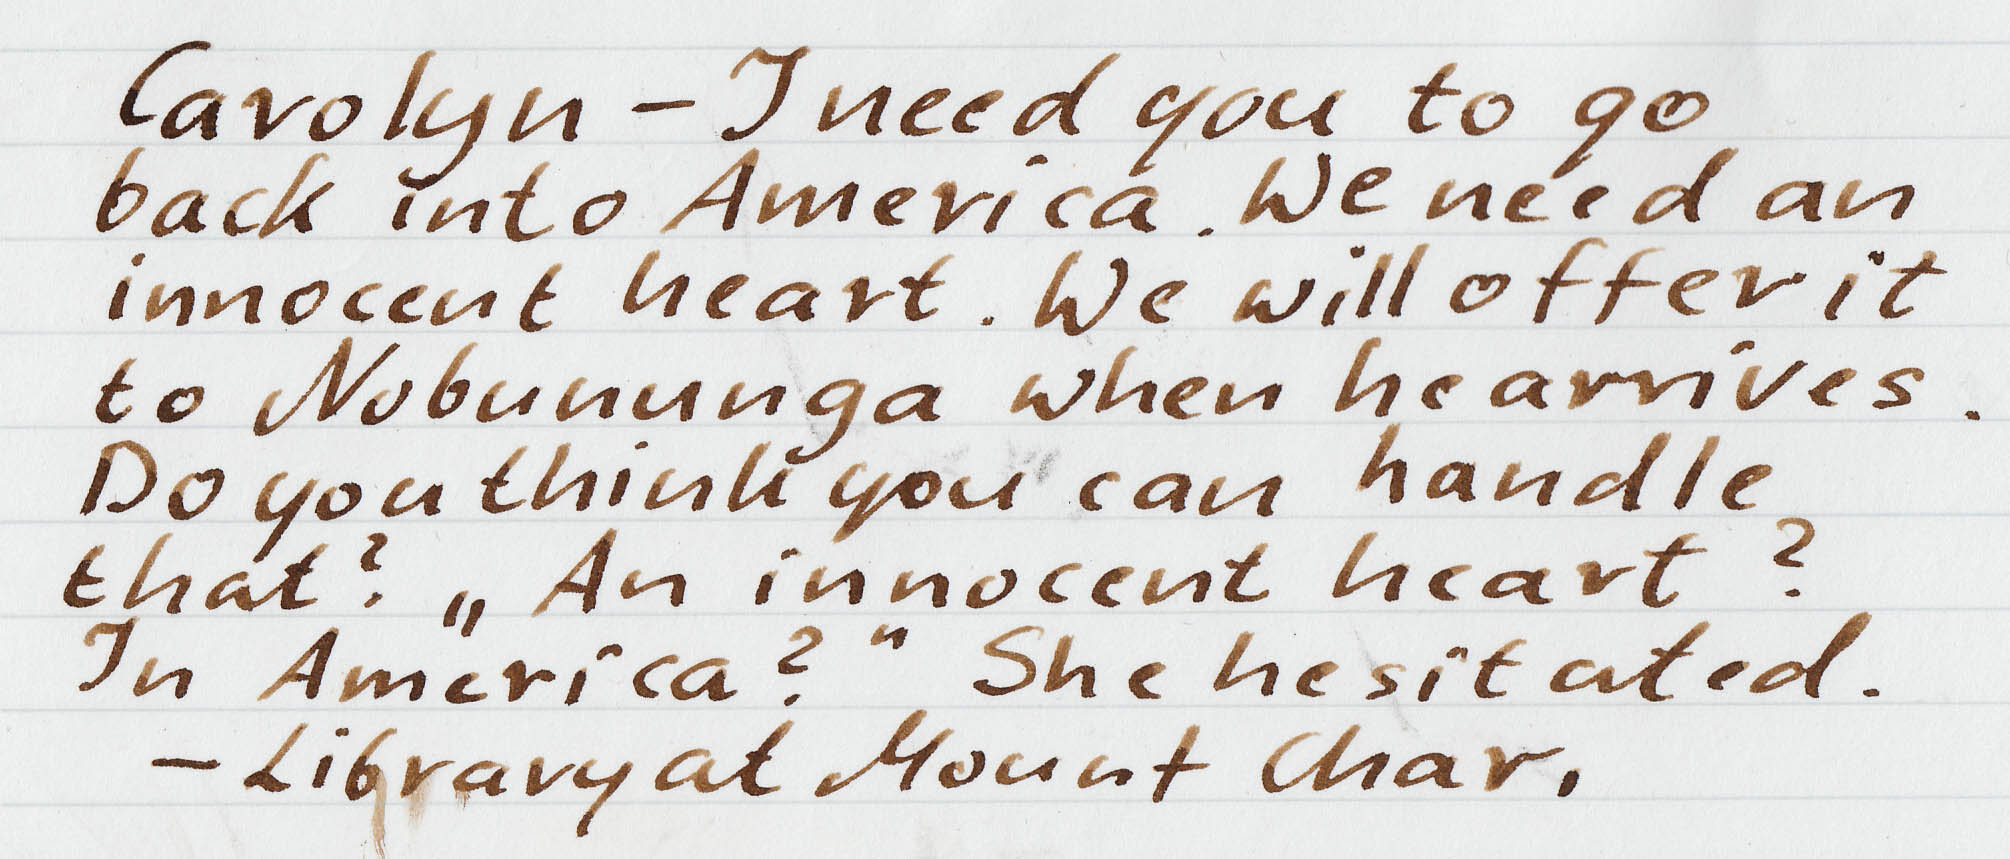 Carolyn – I need you to go
back into America. We need an
innocent heart. We will offer it
to Nobununga when he arrives.
Do you think you can handle
that? „An innocent heart?
In America?“ She hesitated.
– Library at Mount Char.